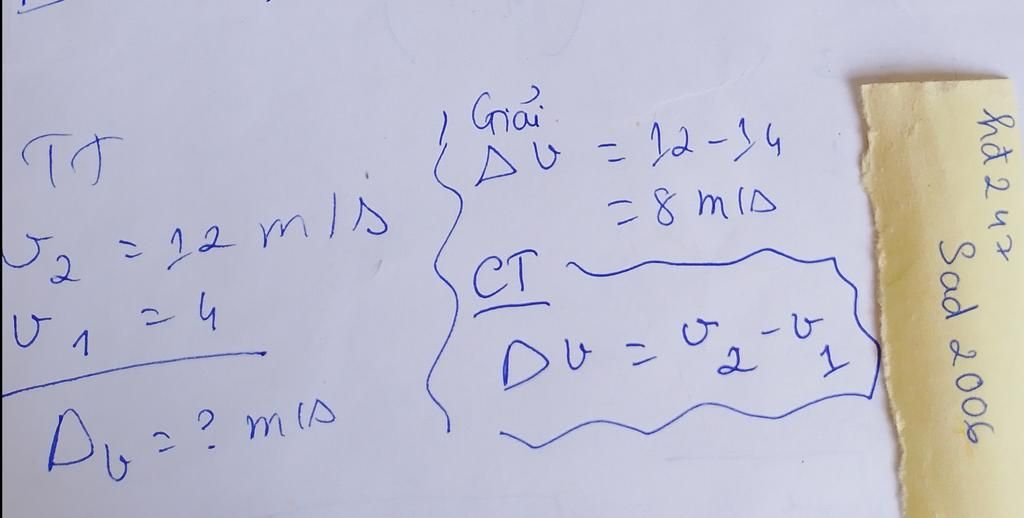 TT
v₂ = 12 m/s
v₁ = 4
Δv = ? m/s
Giải
Δv = 12 - 14
= 8 m/s
CT
Δv = v₂ - v₁
hđ 247
Sad 2006